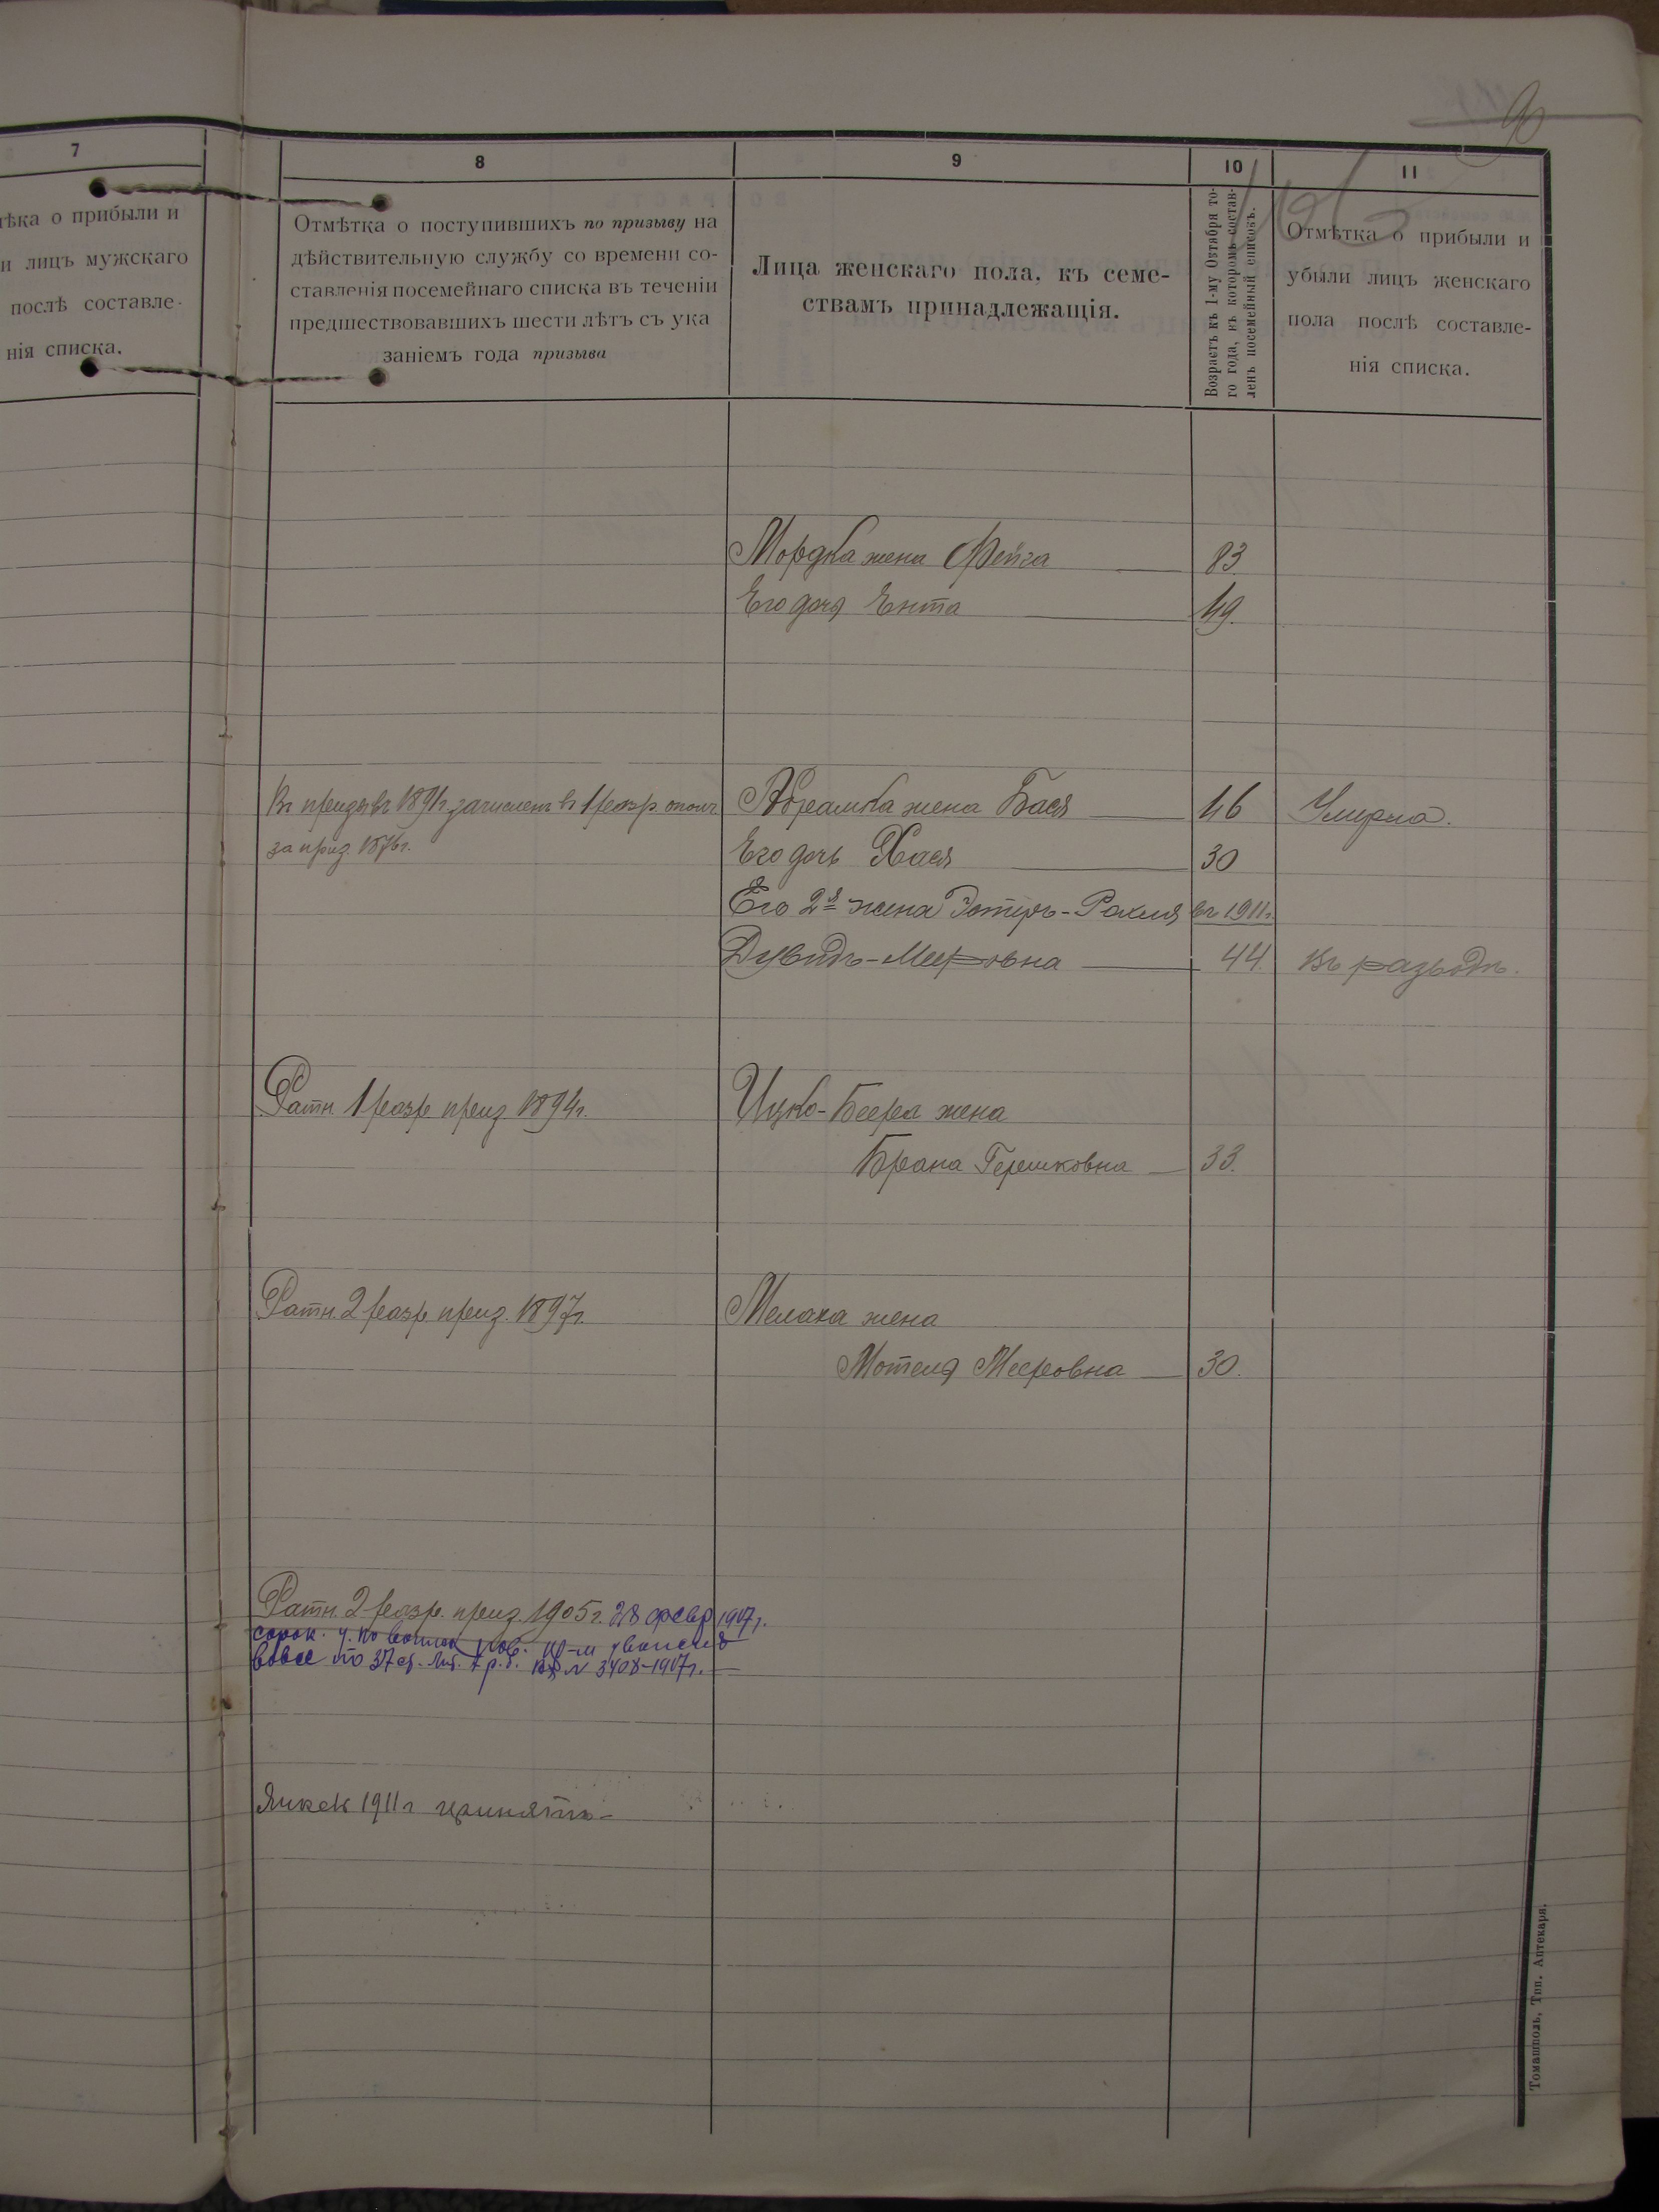 90
7
8
9
10
11
тѣка о прибыли и
и лицъ мужскаго
послѣ составле-
нія списка.
Отмѣтка о поступившихъ по призыву на
дѣйствительную службу со времени со-
ставленія посемейнаго списка въ теченіи
предшествовавшихъ шести лѣтъ съ ука
заніемъ года призыва
Лица женскаго пола, къ семе-
ствамъ принадлежащія.
Возрастъ къ 1-му Октября то-
го года, въ которомъ состав-
ленъ посемейный списокъ.
Отмѣтка о прибыли и
убыли лицъ женскаго
пола послѣ составле-
нія списка.
Мордка жена Фейга 83
Его доч Ента 49.
Въ призывъ 1891г. зачислен в 1 разр. ополч
за приз. 1876г.
Абрамка жена Бася 46 Умерла.
Его дочь Хася 30
Его 2я жена Эстеръ-Рахля въ 1911г.
Дувидъ-Мееровна 44. Въ разводѣ.
Ратн. 1 разр. приз. 1894г.
Ицко-Беера жена
Брана Гершковна 33.
Ратн. 2 разр. приз. 1897г.
Мелаха жена
Мотеля Мееровна 30.
Ратн. 2 разр. приз. 1905г. 28 февр 1907г.
по 37 ст. № 3408-1907г.
1911г принятъ
Томашполь, Тип. Аптекаря.